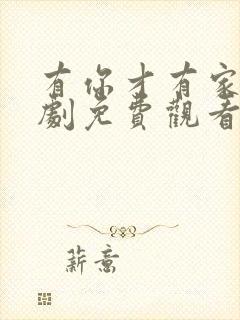 有你才有家
劇免費觀看
薪意